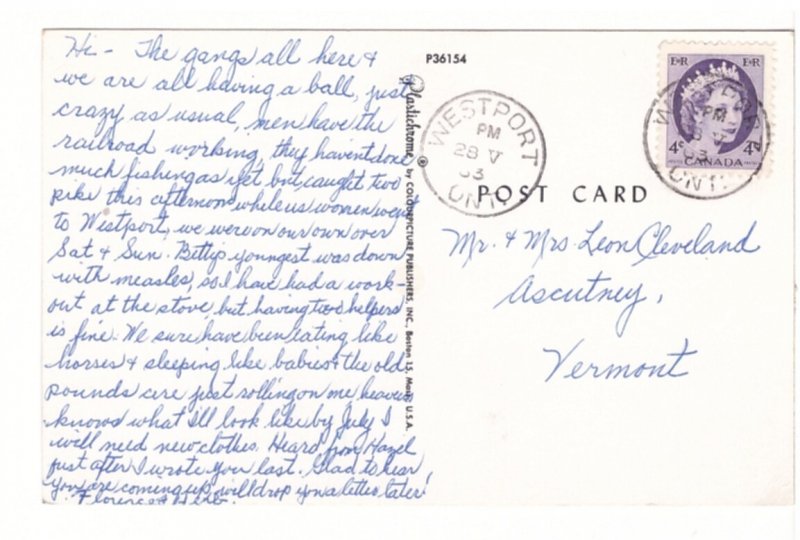 Hi - The gangs all here &
we are all having a ball, just
crazy as usual, men have the
railroad working, they havent done
much fishing as yet but caught two
pike this afternoon while us women went
to Westport, we were on our own over
Sat & Sun. Bettys youngest was down
with measles, so I have had a work-
out at the stove, but having two helpers
is fine. We sure have been eating like
horses & sleeping like babies & the old
pounds are just rolling on me heaven
knows what I'll look like by July I
will need new clothes. Heard from Hazel
just after I wrote you last. Glad to hear
you are coming up, will drop you a letter later!
Florence & Herb.
P36154
Plastichrome ® by COLOURPICTURE PUBLISHERS, INC., Boston 15, Mass., U.S.A.
WESTPORT
PM
28 V
63
ONT.
POST CARD
E II R E II R
4c 4c
CANADA
WESTPORT
PM
V
63
ONT.
Mr. & Mrs Leon Cleveland
Ascutney,
Vermont